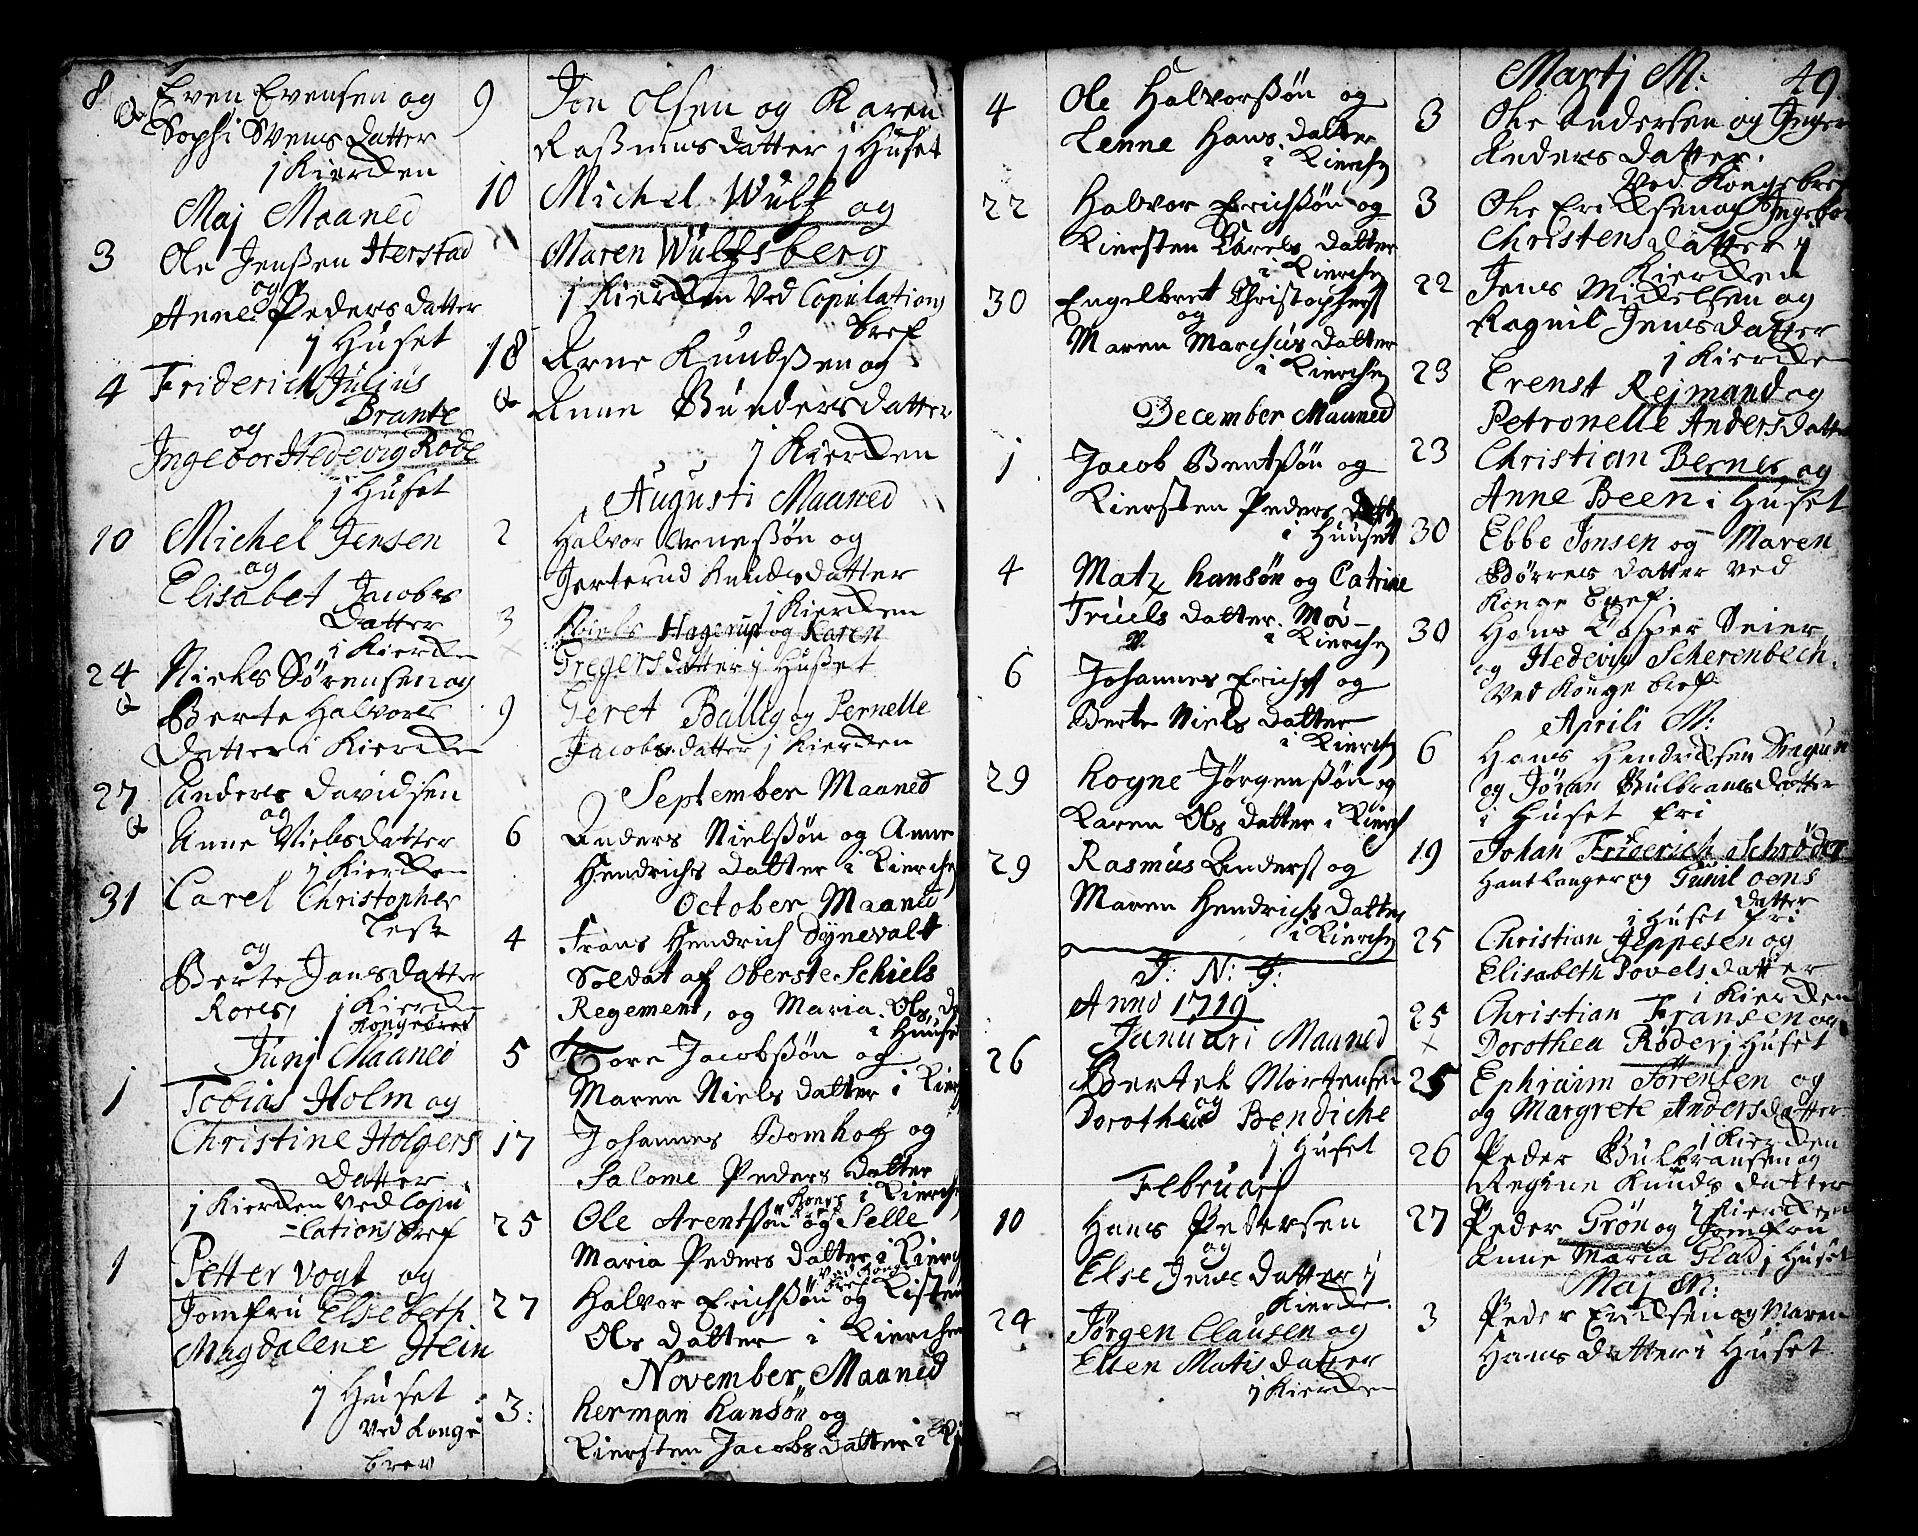 8 Even Evensen og
Sophi Svens datter
j Kircken
Maj Maaned
3 Ole Jenssen Herstad
og
Anne Peders datter
j Huset
4 Friderich Julius
Brante
og
Ingebor Hedevig Rode
j Huset
10 Michel Jensen
og
Elisabet Jacobs
Datter
i Kircken
24 Niels Sörensen og
Berte Halvors
Datter i Kircken
27 Anders Davidsen
og
Anne Nielsdatter
j Kircken
31 Carel Christopher
og
Berte Jansdatter
j Kircken
Kongebref
Junj Maaned
1 Tobias Holm og
Christine Holgers
Datter
j Kircken Ved Copu
-lations bref
1 Petter Vogt og
Jomfru Elsebeth
Magdalene Hein
j Huset
Ved Konge
brev
9 Jon Olsen og Karen
Rasmusdatter j Huset
10 Michel Wulf og
Maren Wulfsberg
j Kircken Ved Copulations
bref
18 Arne Knudssen og
Anne Gundersdatter
j Kircken
Augusti Maaned
2 Halvor Arnessön og
Jerterud Knudsdatter
j Kircken
3 Niels Hagerup og Karen
Gregersdatter j Huset
9 Geret Ballig og Pernelle
Jacobsdatter j Kircken
September Maaned
6 Anders Nielssön og Anne
Hendrichs datter i Kierchen
October Maaned
4 Frans Hendrich Dynevalt
Soldat af Oberste Schiels
Regement, og Maria Ols d
i Huuset
5 Tore Jacobssön og
Maren Niels datter i Kierch
17 Johannes Bomhof og
Salome Peders datter
i Kierchen
25 Ole Arentssön og Selle
Maria Peders datter i Kierch
27 Halvor Erichssön og Kisten
Ols datter i Kierchen
November Maaned
3: Herman Hansön og
Kiersten Jacobs datter i Ki
4 Ole Halvorssön og
Lenne Hans datter
i Kierchen
22 Halvor Erichssön og
Kiersten Carels datter
i Kierchen
30 Engelbret Christophers
og
Maren Marchus datter
i Kierchen
December Maaned
1 Jacob Bentssön og
Kiersten Peders datt
i Huuset
4 Matz Hansön og Catrine
Truels datter.
i Kierchen
6 Johannes Erichs og
Berte Niels datter
i Kierchen
29 Hogne Jörgenssön og
Karen Ols datter i Kierch
29 Rasmus Anders og
Maren Hendrichs datter
i Kierchen
J: N: J:
Anno 1719
Januari Maaned
26 Bertel Mortensen
og
Dorothea Bendiche
j Huset
Februarj
10 Hans Petersen
og
Else Jens datter j
Kircken
24 Jörgen Clausen og
Ellen Matisdatter
j Kircken
Martj M: 49
3 Ole Andersen og Inger
Anders datter.
Ved Kongebref
3 Ole Ericksen og Ingebor
Christensdatter j
Kircken
22 Jens Mickelsen og
Ragnil Jensdatter
j Kircken
23 Erenst Rejmand og
Petronelle Andersdatter
23 Christian Bernes og
Anne Been i Huset
30 Ebbe Jonsen og Maren
Börres datter Ved
Konge bref.
30 Hans Casper Seier
og Hedevig Scherenbech.
Ved Konge bref
Aprili M:
6 Hans Hendricksen Dragun
og Jöran Gulbransdotter
i Huset fri
19 Johan Friderich Schröder
Hantlanger og Gunil Oens
Datter
i Huset fri
25 Christian Jeppesen og
Elisabeth Povels datter
i Kircken
25 Christian Fransen og
Dorothea Röder j Huset
25 Ephraim Sörensen og
og Margrete Andersdatter
i Kircken
26 Peder Gulbransen og
Regine Knuds datter
j Kircken
27 Peder Grön og Jomfru
Anne Maria Glad j Huset
Maj M:
3 Peder Ericksen og Maren
Hans datter i Huset